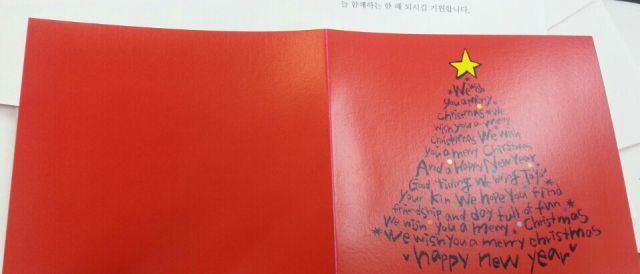 늘 함께하는 한 해 되시길 기원합니다.
*We wish
you a merry
christmas*we
wish you a merry
christmas We wish
you a merry Christmas
And a Happy New Year
Good Tiding We bring To you
your Kin We hope you find
friendship and day full of fun
We wish you a merry Christmas
*We wish you a merry christmas
happy new year